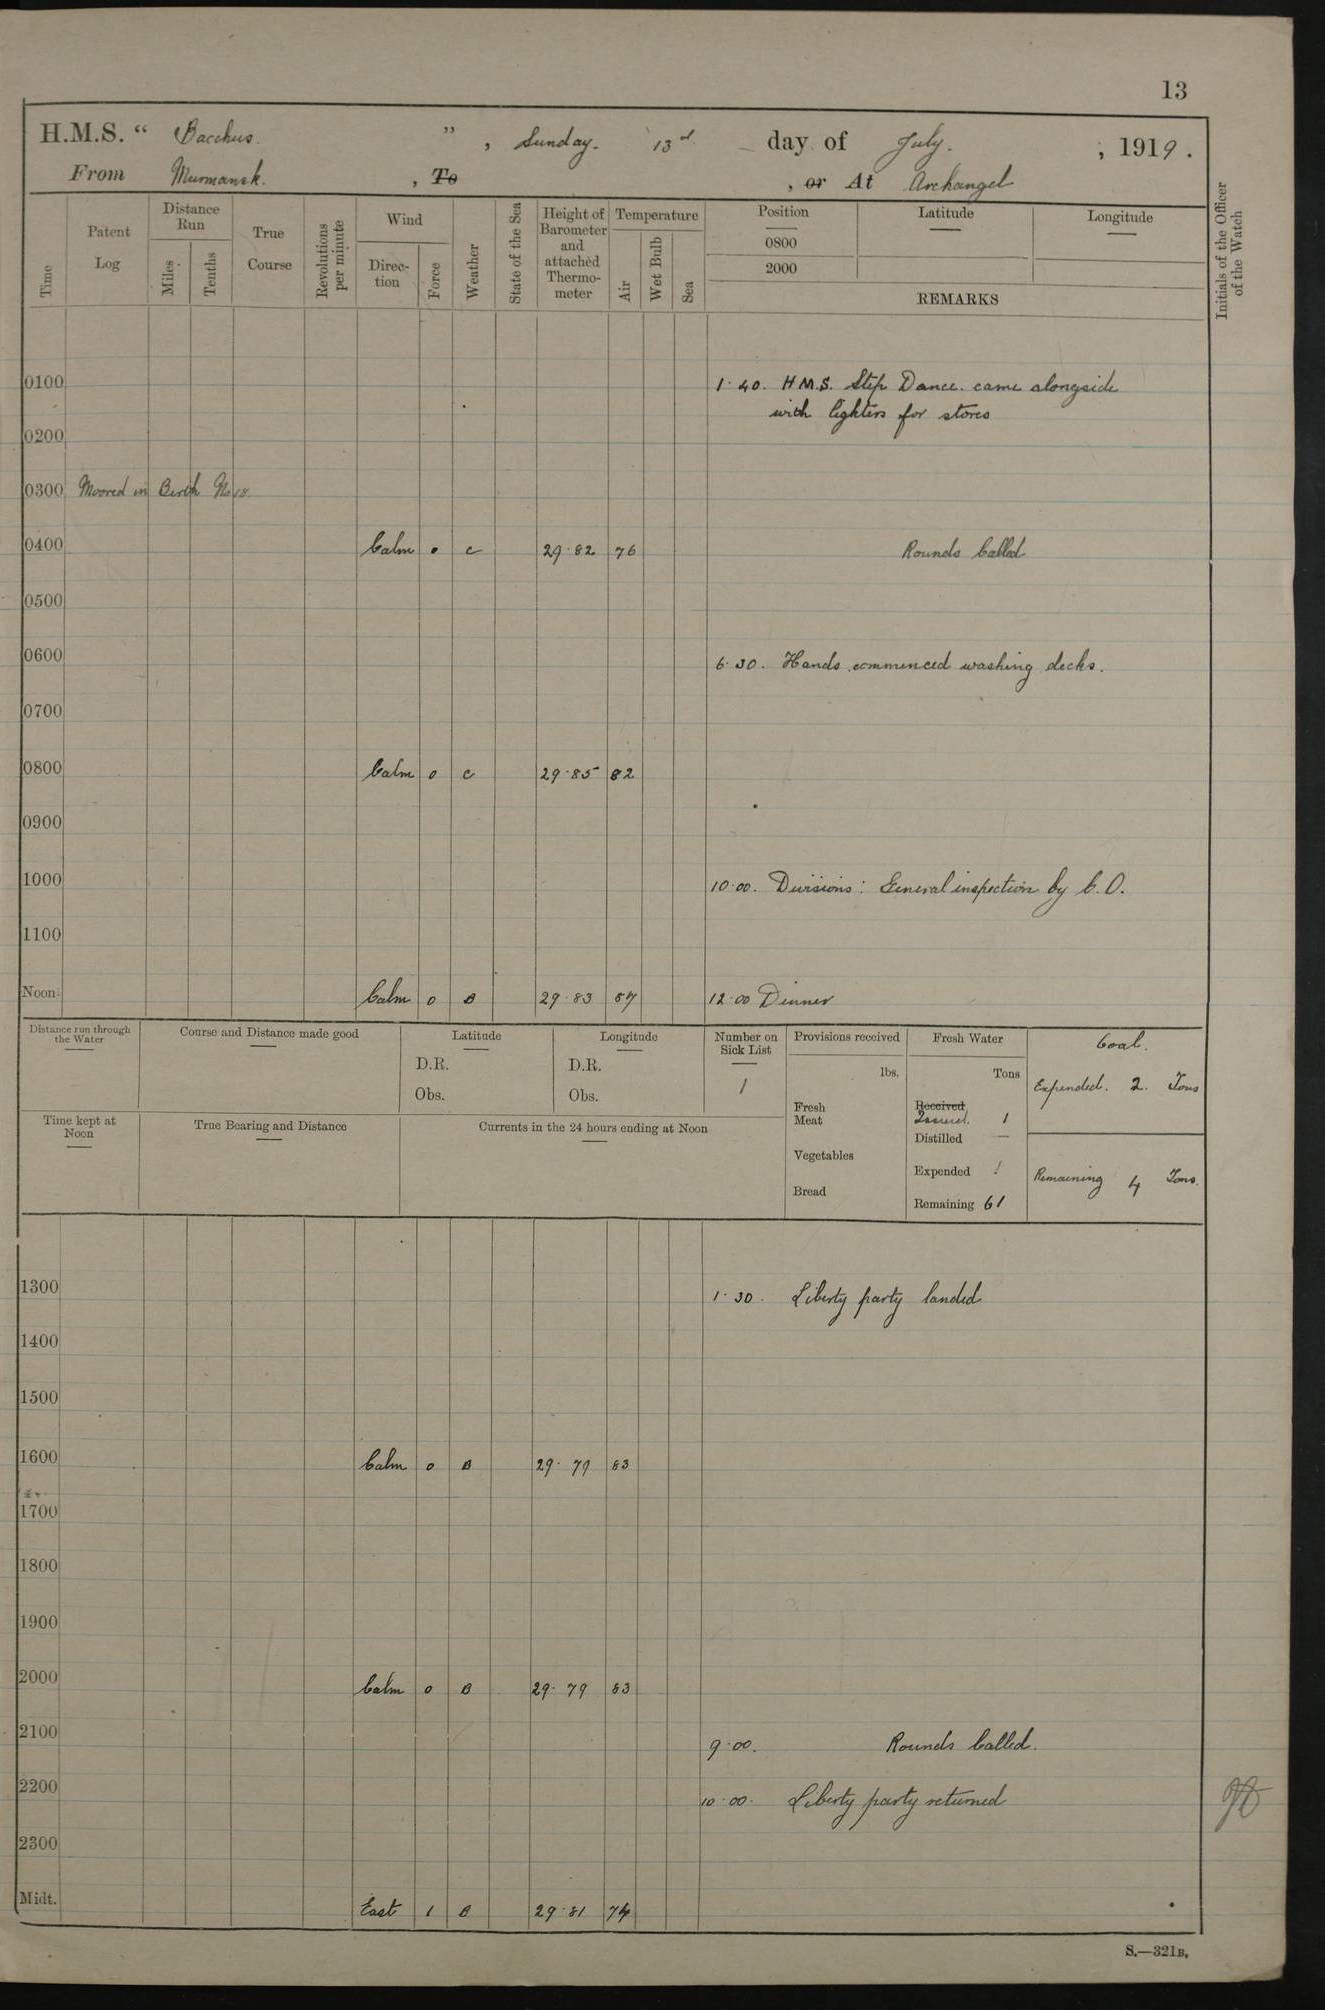 13
H.M.S. “ Bacchus. ” , Sunday. 13th day of July. , 1919.
From Murmansk. , To , or At Archangel
Time
Patent Log
Distance Run
Miles
Tenths
True Course
Revolutions per minute
Wind
Direction
Force
Weather
State of the Sea
Height of Barometer and attached Thermometer
Temperature
Air
Wet Bulb
Sea
Position
0800
2000
Latitude
Longitude
REMARKS
Initials of the Officer of the Watch
0100 1·40. H.M.S. Step Dance. came alongside
with lighters for stores
0200
0300 Moored in Berth No 18.
0400 Calm 0 C 29·82 76 Rounds Called
0500
0600 6·30. Hands commenced washing decks.
0700
0800 Calm 0 C 29·85 82
0900
1000 10·00. Divisions: General inspection by C.O.
1100
Noon Calm 0 B 29·83 87 12·00 Dinner
Distance run through the Water
Course and Distance made good
Latitude
D.R.
Obs.
Longitude
D.R.
Obs.
Number on Sick List
1
Provisions received
lbs.
Fresh Meat
Vegetables
Bread
Fresh Water
Tons
Received
Issued. 1
Distilled —
Expended 1
Remaining 61
Coal.
Expended. 2. Tons
Remaining 4 Tons.
Time kept at Noon
True Bearing and Distance
Currents in the 24 hours ending at Noon
1300 1·30. Liberty party landed
1400
1500
1600 Calm 0 B 29·79 83
1700
1800
1900
2000 Calm 0 B 29·79 83
2100 9·00. Rounds Called.
2200 10·00. Liberty party returned
2300
Midt. East 1 B 29·81 74
S.—321B.